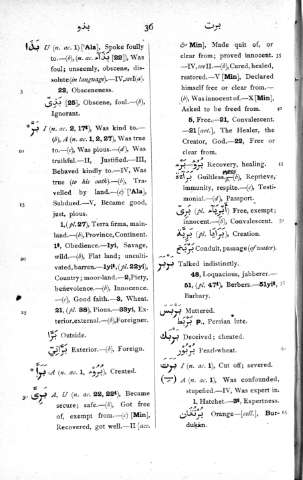 برت 36 بذو
بَذَأَ U (n. ac. 1) ['Ala], Spoke foully
to.—(b), (n. ac. بَذَاء [22]), Was
foul; unseemly, obscene, dis-
solute (in language).—IV,
22, Obsceneness.
5
بَذِيّ [25], Obscene, foul.—(b),
Ignorant.
بَرَّ I (n. ac. 2, 17⁴), Was kind to.—
(b), A (n. ac. 1, 2, 27), Was true
to.—(c), Was pious.—(d), Was
10
truthful.—II, Justified.—III,
Behaved kindly to.—IV, Was
true (to his oath).—(b), Tra-
velled by land.—(c) ['Ala],
Subdued.—V, Became good,
15
just, pious.
1, (pl. 27), Terra firma, main-
land.—(b), Province, Continent.
1ᵗ, Obedience.—1yi, Savage,
wild.—(b), Flat land; unculti-
20
vated, barren.—1yiᵗ, (pl. 22yi),
Country; moor-land.—2, Piety,
benevolence.—(b), Innocence.
—(c), Good faith.—3, Wheat.
21, (pl. 38), Pious.—33yi, Ex-
25
terior, external.—(b), Foreigner.
بَرًّا Outside.
بَرَّانِيّ Exterior.—(b), Foreign.
بَرَأَ A (n. ac. 1, بُرُوْء), Created.
بَرِئَ A, U (n. ac. 22, 22⁴), Became
30
secure; safe.—(b), Got free
of, exempt from.—(c) [Min],
Recovered, got well.—II [acc.
& Min], Made quit of, or
clear from; proved innocent.
35
—IV, acc II.—(b), Cured, healed,
restored.—V [Min], Declared
himself free or clear from.—
(b), Was innocent of.—X [Min],
Asked to be freed from.
40
5, Free.—21, Convalescent.
—21 [art.], The Healer, the
Creator, God.—22, Free or
clear from.
Recovery, healing.
45
بَرَاءَة Guiltless.—(b), Reprieve,
immunity, respite.—(c), Testi-
monial.—(d), Passport.
بَرِيّ Free, exempt;
innocent.—(b), Convalescent.
50
Creation.
Conduit, passage (of water).
بَرْبَرَ Talked indistinctly.
48, Loquacious, jabberer.—
51, (pl. 47ᵗ), Berbers.—51yiᵗ,
55
Barbary.
Muttered.
بَرْبَط P., Persian lute.
Deceived; cheated.
Pearl-wheat.
60
بَرَتَ I (n. ac. 1), Cut off; severed.
A (n. ac. 1), Was confounded,
stupefied.—IV, Was expert in.
1, Hatchet.—3ᵗ, Expertness.
بُرْتُقَان Orange—[coll.], Bur-
65
dukān.